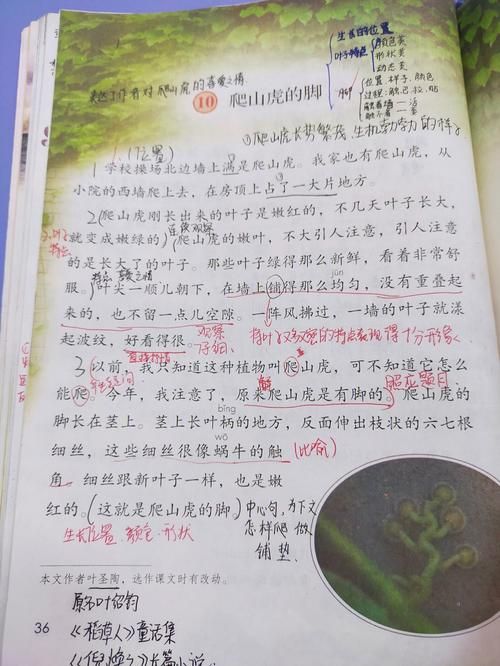 生长的位置
叶子特点
颜色美
形状美
动态美
脚
位置 样子、颜色
过程:触 巴 拉 贴
触着墙—活
触不着—萎
表达了作者对爬山虎的喜爱之情
10 爬山虎的脚
①爬山虎长势繁茂,生机勃勃的样子
1.(位置)
学校操场北边墙上满是爬山虎。我家也有爬山虎,从
小院的西墙爬上去,在房顶上占了一大片地方。
2 爬山虎刚长出来的叶子是嫩红的,不几天叶子长大,
连续观察
就变成嫩绿的。爬山虎的嫩叶,不大引人注意,引人注意
特点
的是长大了的叶子。那些叶子绿得那么新鲜,看着非常舒
喜爱之情
jūn
服。叶尖一顺儿朝下,在墙上铺得那么均匀,没有重叠起
来的,也不留一点儿空隙。一阵风拂过,一墙的叶子就漾
起波纹,好看得很。
观察
仔细
3 以前,我只知道这种植物叫爬山虎,可不知道它怎么
能爬。今年,我注意了,原来爬山虎是有脚的。爬山虎的
照应题目
bǐng
脚长在茎上。茎上长叶柄的地方,反面伸出枝状的六七根
wō
细丝,这些细丝很像蜗牛的触
(比喻)
角。细丝跟新叶子一样,也是嫩
红的。这就是爬山虎的脚。
中心句,为下文
怎样爬 做
铺垫.
生长位置、颜色、形状
本文作者叶圣陶,选作课文时有改动。
原名叶绍钧
36
《稻草人》童话集
《倪焕之》长篇小说。